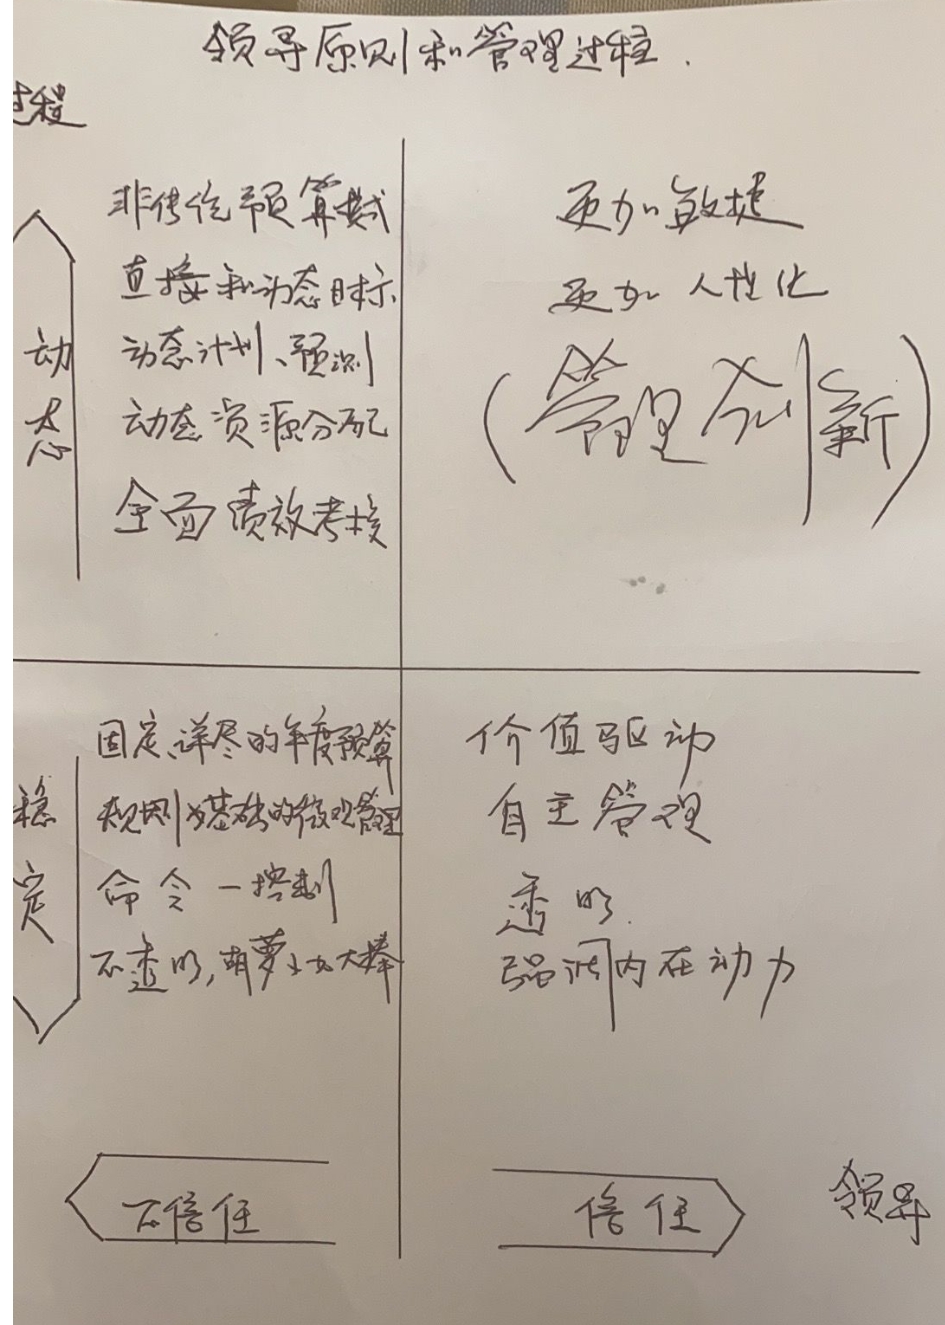 领导原则和管理过程.
过程
动态
非传统预算模式
直接和动态目标
动态计划、预测
动态资源分配
全面绩效考核
更加敏捷
更加人性化
(管理创新)
稳定
固定、详尽的年度预算
规则为基础的微观管理
命令-控制
不透明,胡萝卜加大棒
价值驱动
自主管理
透明.
强调内在动力
不信任
信任
领导